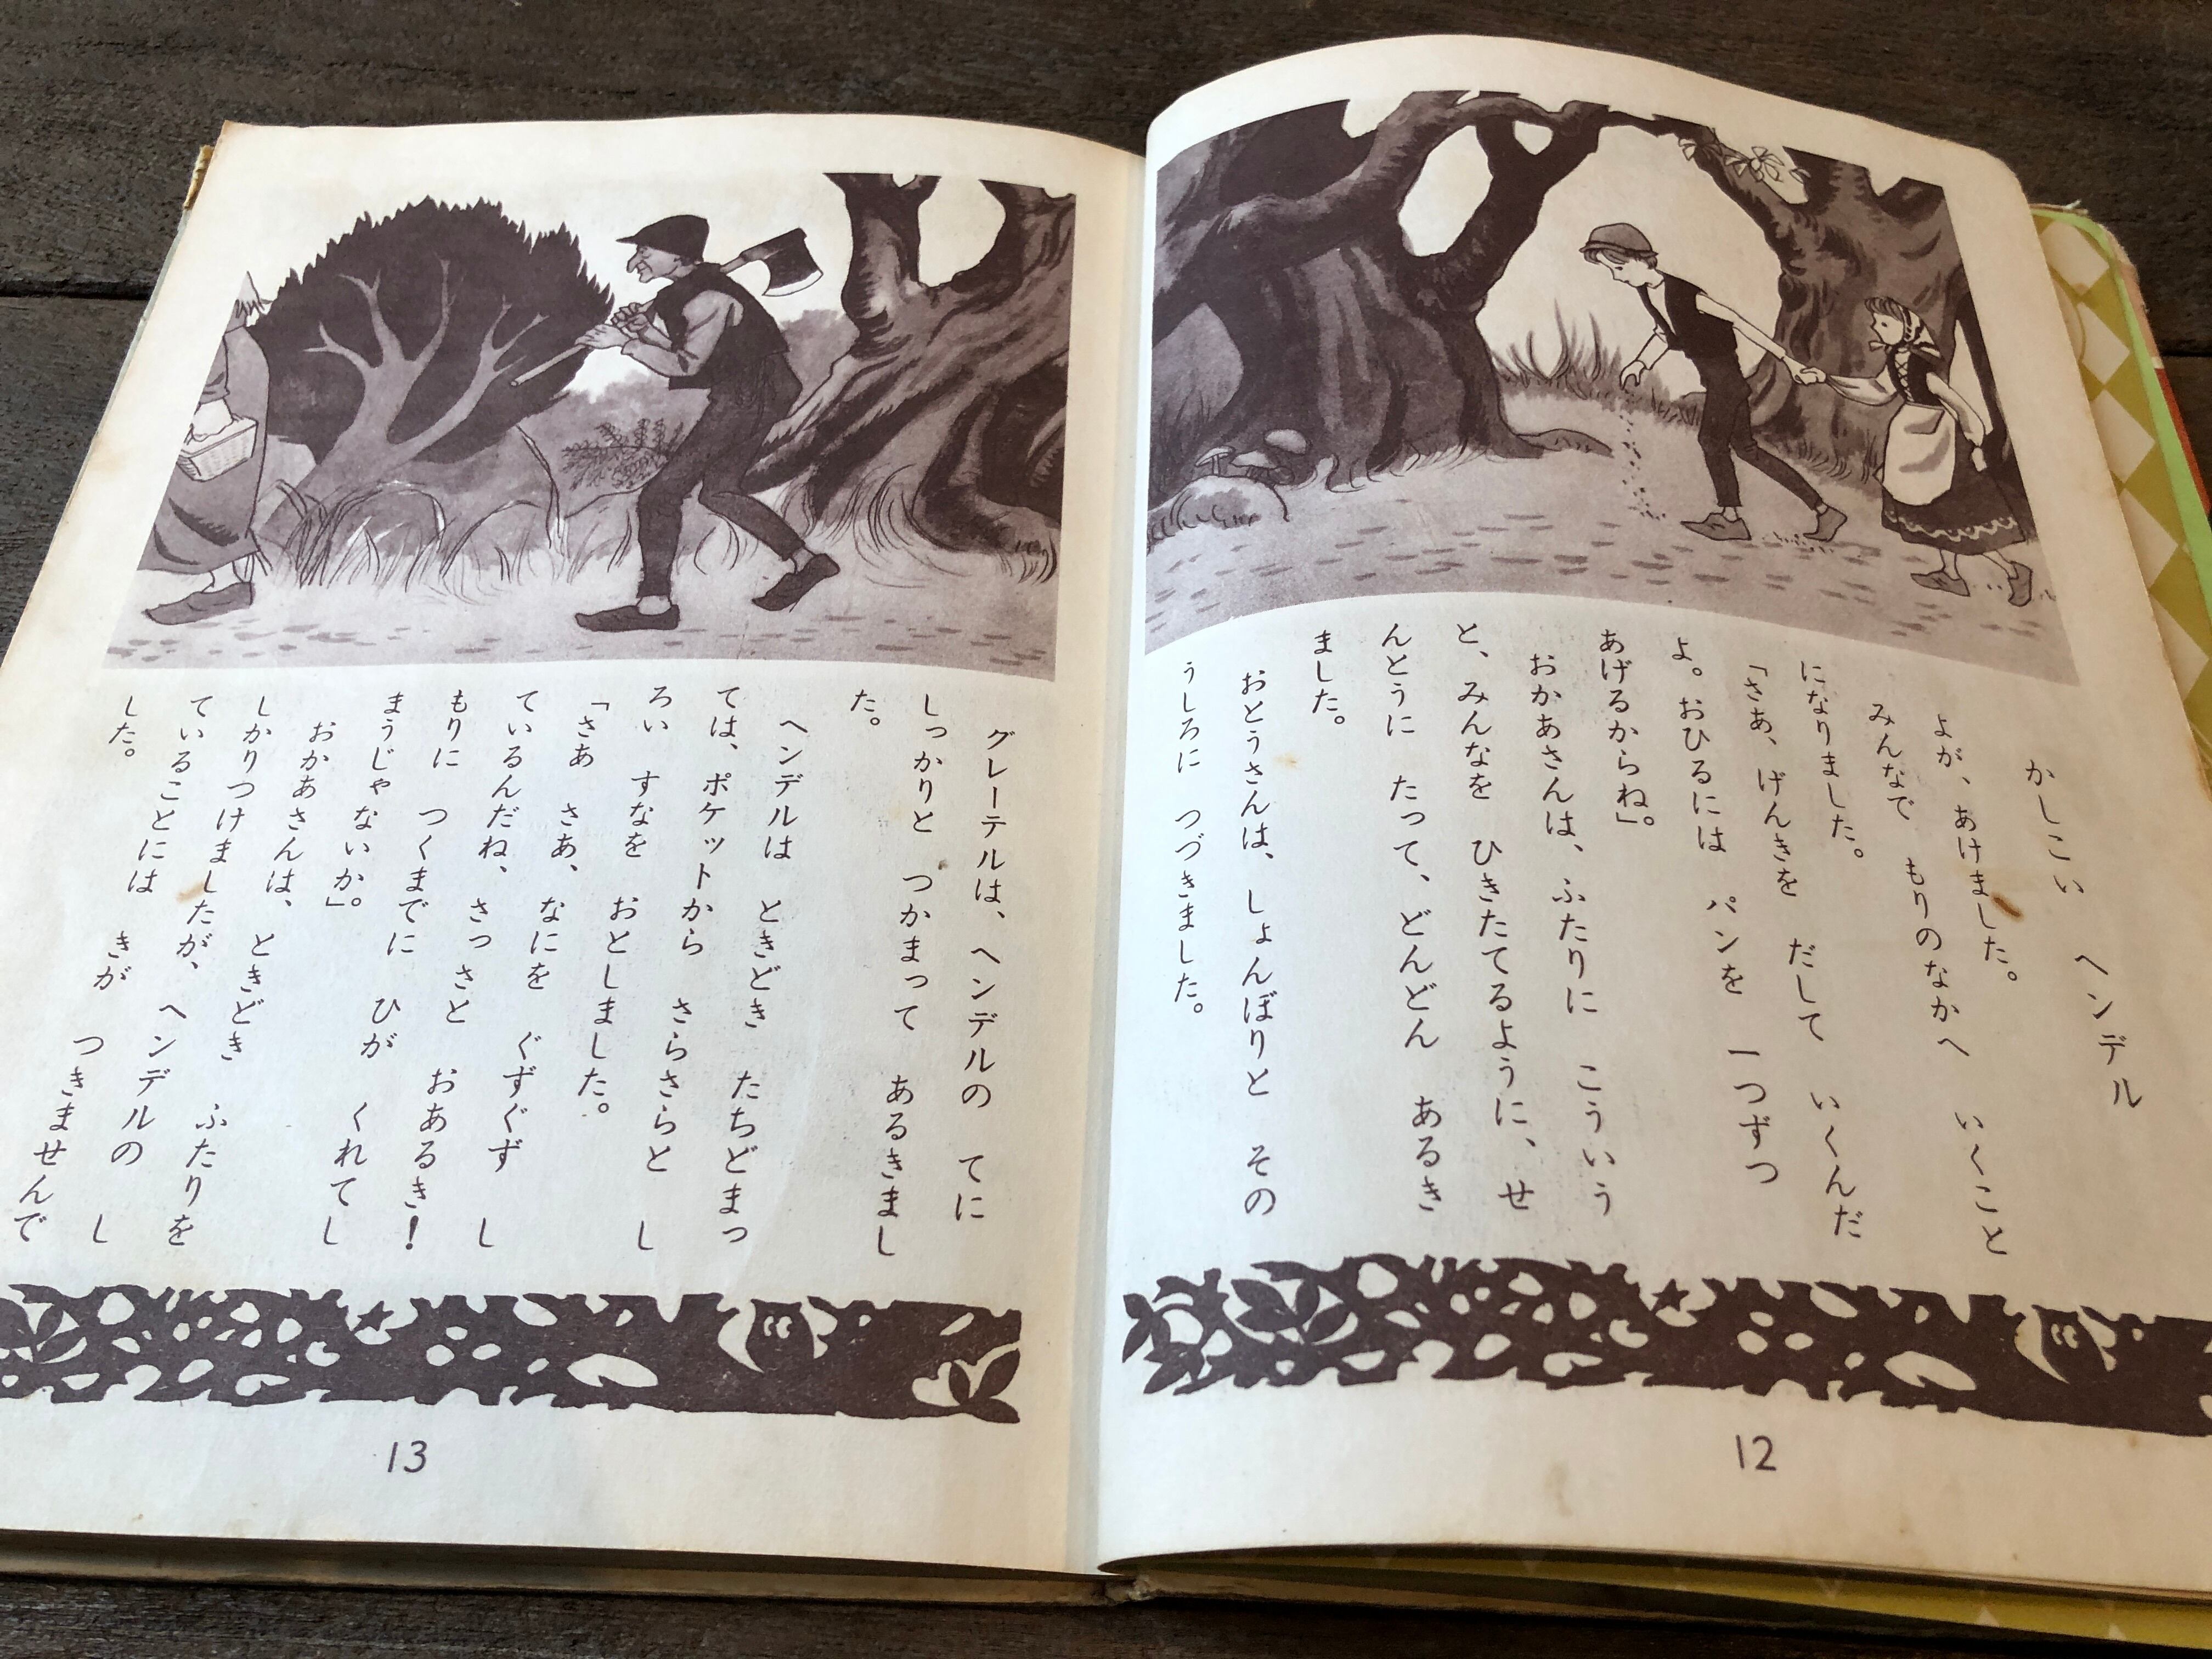 かしこい ヘンデル
よが、あけました。
みんなで もりのなかへ いくこと
になりました。
「さあ、げんきを だして いくんだ
よ。おひるには パンを 一つずつ
あげるからね」。
おかあさんは、ふたりに こういう
と、みんなを ひきたてるように、せ
んとうに たって、どんどん あるき
ました。
おとうさんは、しょんぼりと その
うしろに つづきました。
12
グレーテルは、ヘンデルの てに
しっかりと つかまって あるきまし
た。
ヘンデルは ときどき たちどまっ
ては、ポケットから さらさらと し
ろい すなを おとしました。
「さあ さあ、なにを ぐずぐず し
ているんだね、さっさと おあるき！
もりに つくまでに ひが くれてし
まうじゃ ないか」。
おかあさんは、ときどき ふたりを
しかりつけましたが、ヘンデルの し
ていることには きが つきませんで
した。
13